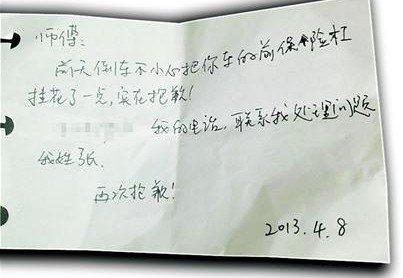 师傅:
前天倒车不小心把你车的前保险杠
挂花了一点,实在抱歉!
我的电话,联系我处理问题
我姓张.
再次抱歉!
2013.4.8